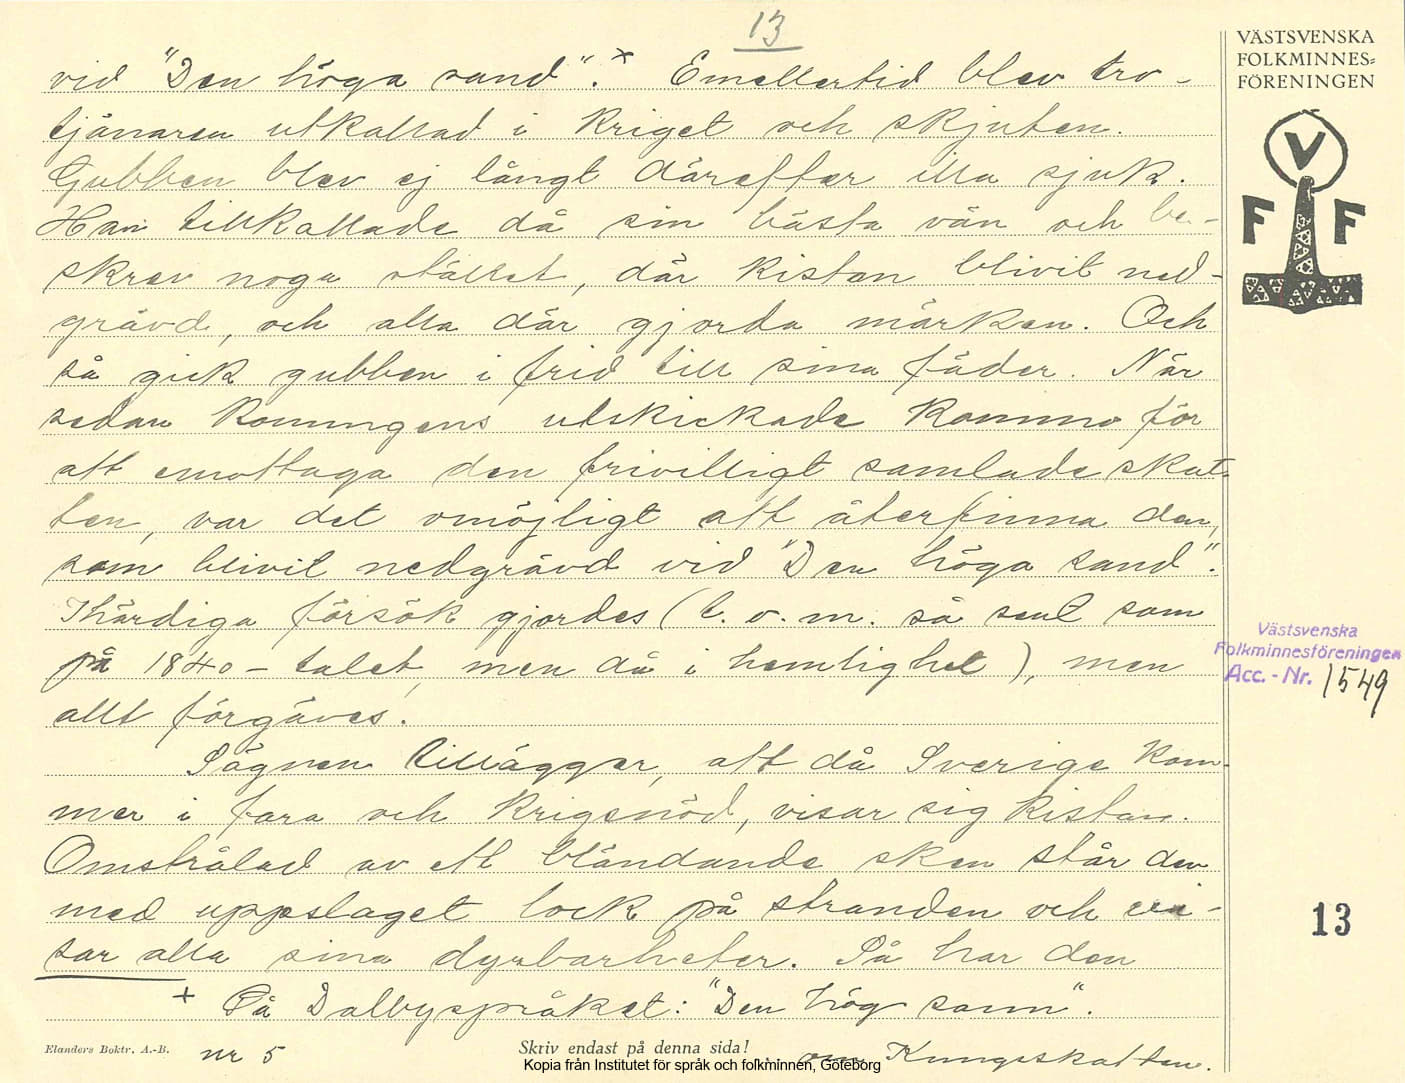 13
vid "Den höga sand".x Emellertid blev tro-
tjänaren utkallad i kriget och skjuten.
Gubben blev ej långt därefter illa sjuk.
Han tillkallade då sin bästa vän och be-
skrev noga stället, där kistan blivit ned-
grävd, och alla där gjorda märken. Och
så gick gubben i frid till sina fäder. När
sedan konungens utskickade kommo för
att emottaga den frivilligt samlade skat-
ten, var det omöjligt att återfinna den,
som blivit nedgrävd vid "Den höga sand".
Ihärdiga försök gjordes (t. o. m. så sent som
på 1840-talet, men då i hemlighet), men
allt förgäves.
Sägnen tillägger, att då Sverige kom-
mer i fara och krigsnöd, visar sig kistan.
Omstrålad av ett bländande sken står den
med uppslaget lock på stranden och vi-
sar alla sina dyrbarheter. Så har den
+ På Dalbyspråket: "Den hög sann".
Elanders Boktr. A.-B. nr 5 Skriv endast på denna sida! om Kungsskatten.
Kopia från Institutet för språk och folkminnen, Göteborg
VÄSTSVENSKA
FOLKMINNES-
FÖRENINGEN
V
F F
Västsvenska
Folkminnesföreningen
Acc. - Nr. 1549
13